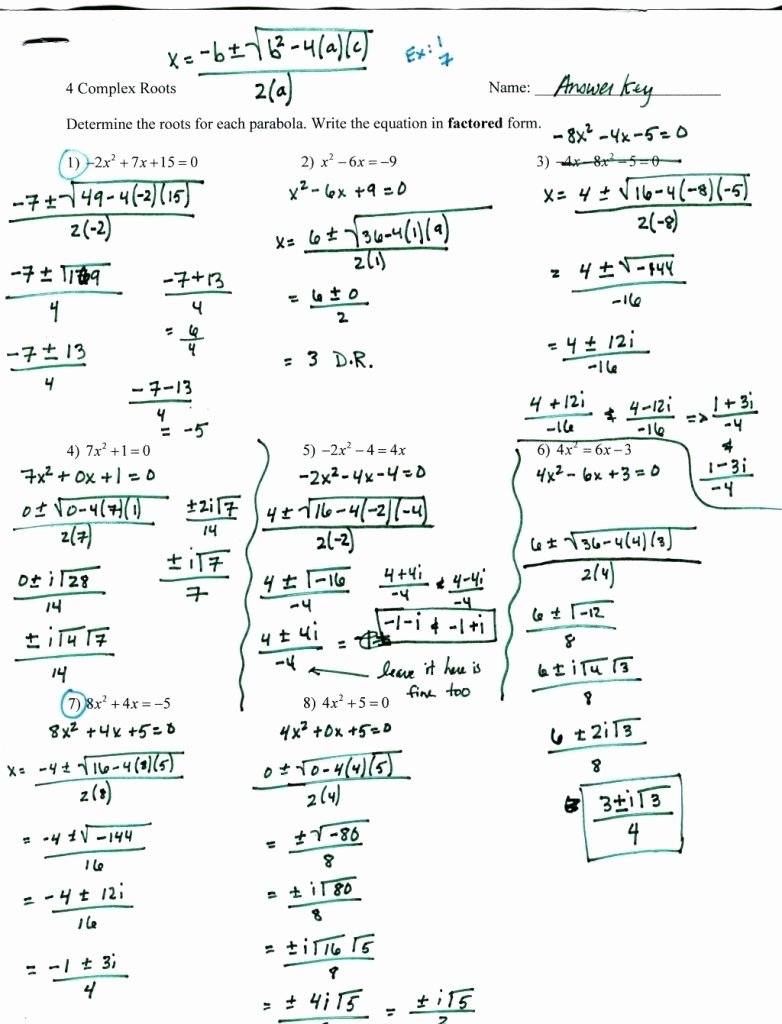 x = -b ± √b² - 4(a)(c) / 2(a)
Ex: 1, 7
4 Complex Roots
Name: Answer Key
Determine the roots for each parabola. Write the equation in factored form.
1) -2x² + 7x + 15 = 0
-7 ± √49 - 4(-2)(15) / 2(-2)
-7 ± √169 / 4
-7 + 13 / 4
= 6/4
-7 ± 13 / 4
-7 - 13 / 4
= -5
2) x² - 6x = -9
x² - 6x + 9 = 0
x = 6 ± √36 - 4(1)(9) / 2(1)
= 6 ± 0 / 2
= 3 D.R.
-8x² - 4x - 5 = 0
3) -4x - 8x² - 5 = 0
x = 4 ± √16 - 4(-8)(-5) / 2(-8)
= 4 ± √-144 / -16
= 4 ± 12i / -16
4 + 12i / -16 & 4 - 12i / -16 => 1 + 3i / -4
&
1 - 3i / -4
4) 7x² + 1 = 0
7x² + 0x + 1 = 0
0 ± √0 - 4(7)(1) / 2(7)
±2i√7 / 14
±i√7 / 7
0 ± i√28 / 14
± i√4 √7 / 14
5) -2x² - 4 = 4x
-2x² - 4x - 4 = 0
4 ± √16 - 4(-2)(-4) / 2(-2)
4 ± √-16 / -4
4 + 4i / -4 & 4 - 4i / -4
4 ± 4i / -4 = -1 - i & -1 + i
leave it here is
fine too
6) 4x² = 6x - 3
4x² - 6x + 3 = 0
6 ± √36 - 4(4)(3) / 2(4)
6 ± √-12 / 8
6 ± i√4 √3 / 8
6 ± 2i√3 / 8
3 ± i√3 / 4
7) 8x² + 4x = -5
8x² + 4x + 5 = 0
x = -4 ± √16 - 4(8)(5) / 2(8)
= -4 ± √-144 / 16
= -4 ± 12i / 16
= -1 ± 3i / 4
8) 4x² + 5 = 0
4x² + 0x + 5 = 0
0 ± √0 - 4(4)(5) / 2(4)
= ± √-80 / 8
= ± i√80 / 8
= ± i√16 √5 / 8
= ± 4i√5 = ± i√5 / 2